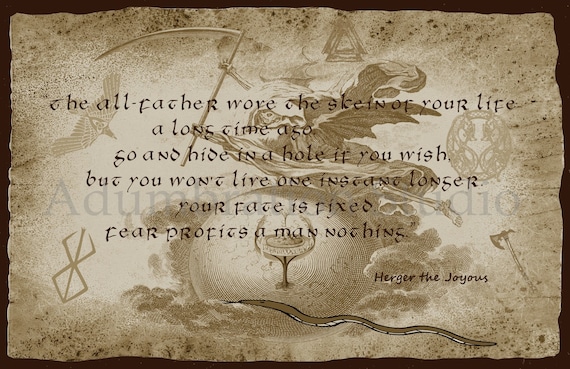 "The All-Father wove the skein of your life
a long time ago.
Go and hide in a hole if you wish,
but you won't live one instant longer.
Your fate is fixed.
Fear profits a man nothing."
Herger the Joyous